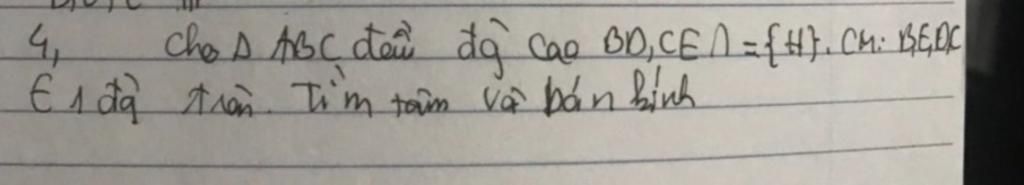 4, Cho Δ ABC đều đg cao BD, CE ∩ = {H}. CM: B,E,D,C
∈ 1 đg tròn. Tìm tâm và bán kính